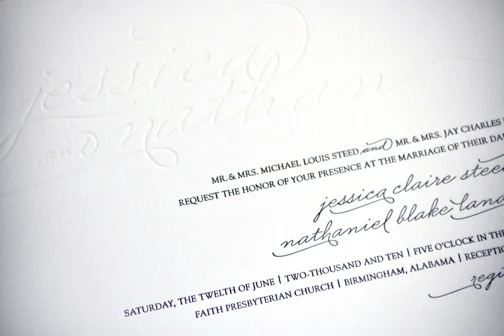 jessica
and nathan
MR. & MRS. MICHAEL LOUIS STEED and MR. & MRS. JAY CHARLES
REQUEST THE HONOR OF YOUR PRESENCE AT THE MARRIAGE OF THEIR
jessica claire
nathaniel blake
SATURDAY, THE TWELTH OF JUNE | TWO-THOUSAND AND TEN | FIVE O'CLOCK IN THE
FAITH PRESBYTERIAN CHURCH | BIRMINGHAM, ALABAMA |